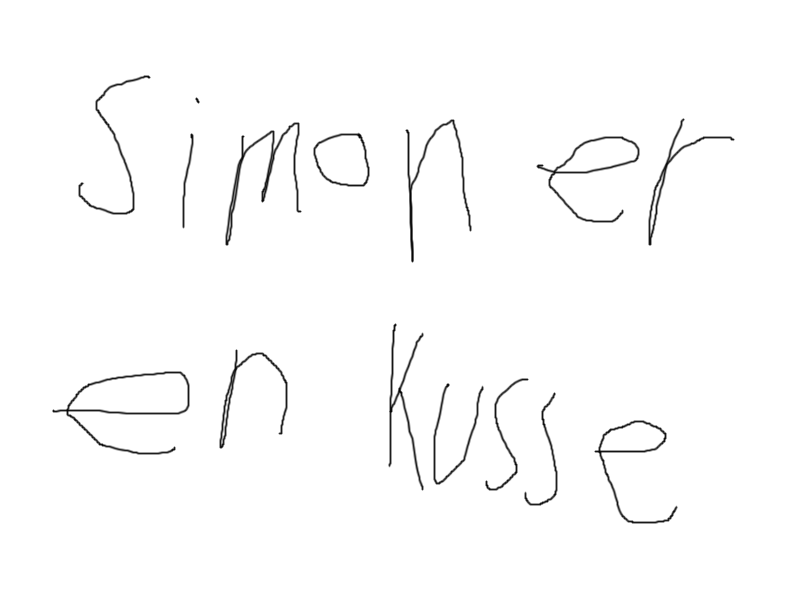 Simon er
en Kusse